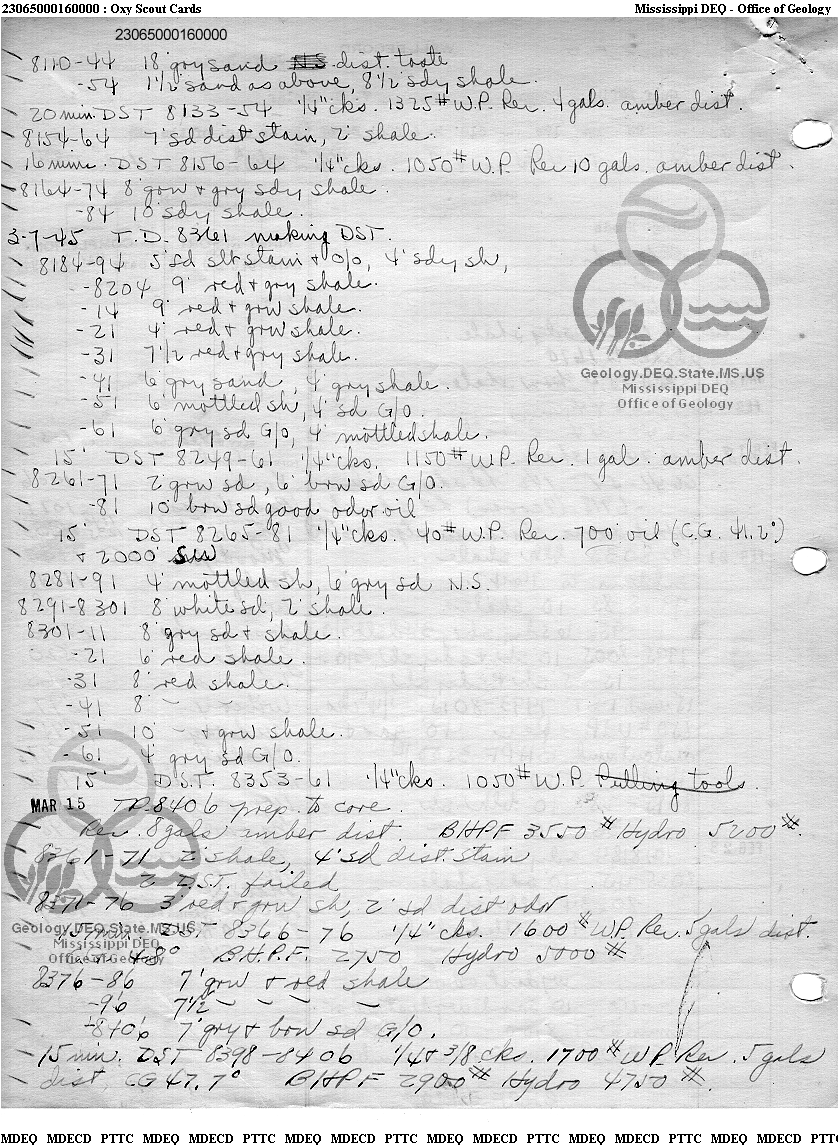 23065000160000 : Oxy Scout Cards
Mississippi DEQ - Office of Geology
23065000160000
8110-44 18' gry sand N.S. dist. taste
-54 1½' sand as above, 8½' sdy shale.
20 min. DST 8133-54 ¼" cks. 1325# W.P. Rec. 4 gals. amber dist.
8154-64 7' sd dist stain, 2' shale.
16 mins. DST 8156-64 ¼" cks. 1050# W.P. Rec 10 gals. amber dist.
8164-74 8' grn + gry sdy shale.
-84 10' sdy shale.
3-7-45 T.D. 8361 making DST.
8184-94 5' sd slt stain + O/o, 4' sdy sh,
-8204 9' red + gry shale.
-14 9' red + grn shale.
-21 4' red + grn shale.
-31 7½' red + gry shale.
-41 6' gry sand, 4' gry shale.
-51 6' mottled sh, 4' sd G/O.
-61 6' gry sd G/O, 4' mottled shale.
15' DST 8249-61 ¼" cks. 1150# W.P. Rec. 1 gal. amber dist.
8261-71 2' grn sd, 6' brn sd G/O.
-81 10' brn sd good odor oil
15' DST 8265-81 ¼" cks. 40# W.P. Rec. 700' oil (C.G. 41.2°)
+ 2000' SW
8281-91 4' mottled sh, 6' gry sd N.S.
8291-8301 8' white sd, 2' shale.
8301-11 8' gry sd + shale.
-21 6' red shale.
-31 8' red shale.
-41 8' ~
-51 10' ~ + grn shale.
-61 4' gry sd G/O.
15' D.S.T. 8353-61 ¼" cks. 1050# W.P. Pulling tools.
MAR 15 TD 8406 prep. to core.
Rec. 8 gals amber dist BHPF 3550# Hydro 5200#.
8361-71 2' shale, 4' sd dist. stain
2 DST. failed
8371-76 3' red + grn sh, 2' sd dist odor
15 min. DST 8366-76 ¼" cks. 1600# W.P. Rec. 5 gals dist.
48° B.H.P.F. 2750 Hydro 5000#
8376-86 7' grn + red shale
-96 7½' ~ ~ ~ ~
-8406 7' gry + brn sd G/O.
15 min. DST 8398-8406 ¼ + 3/8 cks. 1700# W.P. Rec. 5 gals
dist CG 47.7° BHPF 2900# Hydro 4750#.
Geology.DEQ.State.MS.US
Mississippi DEQ
Office of Geology
Geology.DEQ.State.MS.US
Mississippi DEQ
Office of Geology
MDEQ MDECD PTTC MDEQ MDECD PTTC MDEQ MDECD PTTC MDEQ MDECD PTTC MDEQ MDECD PTTC MDEQ MDECD PTTC